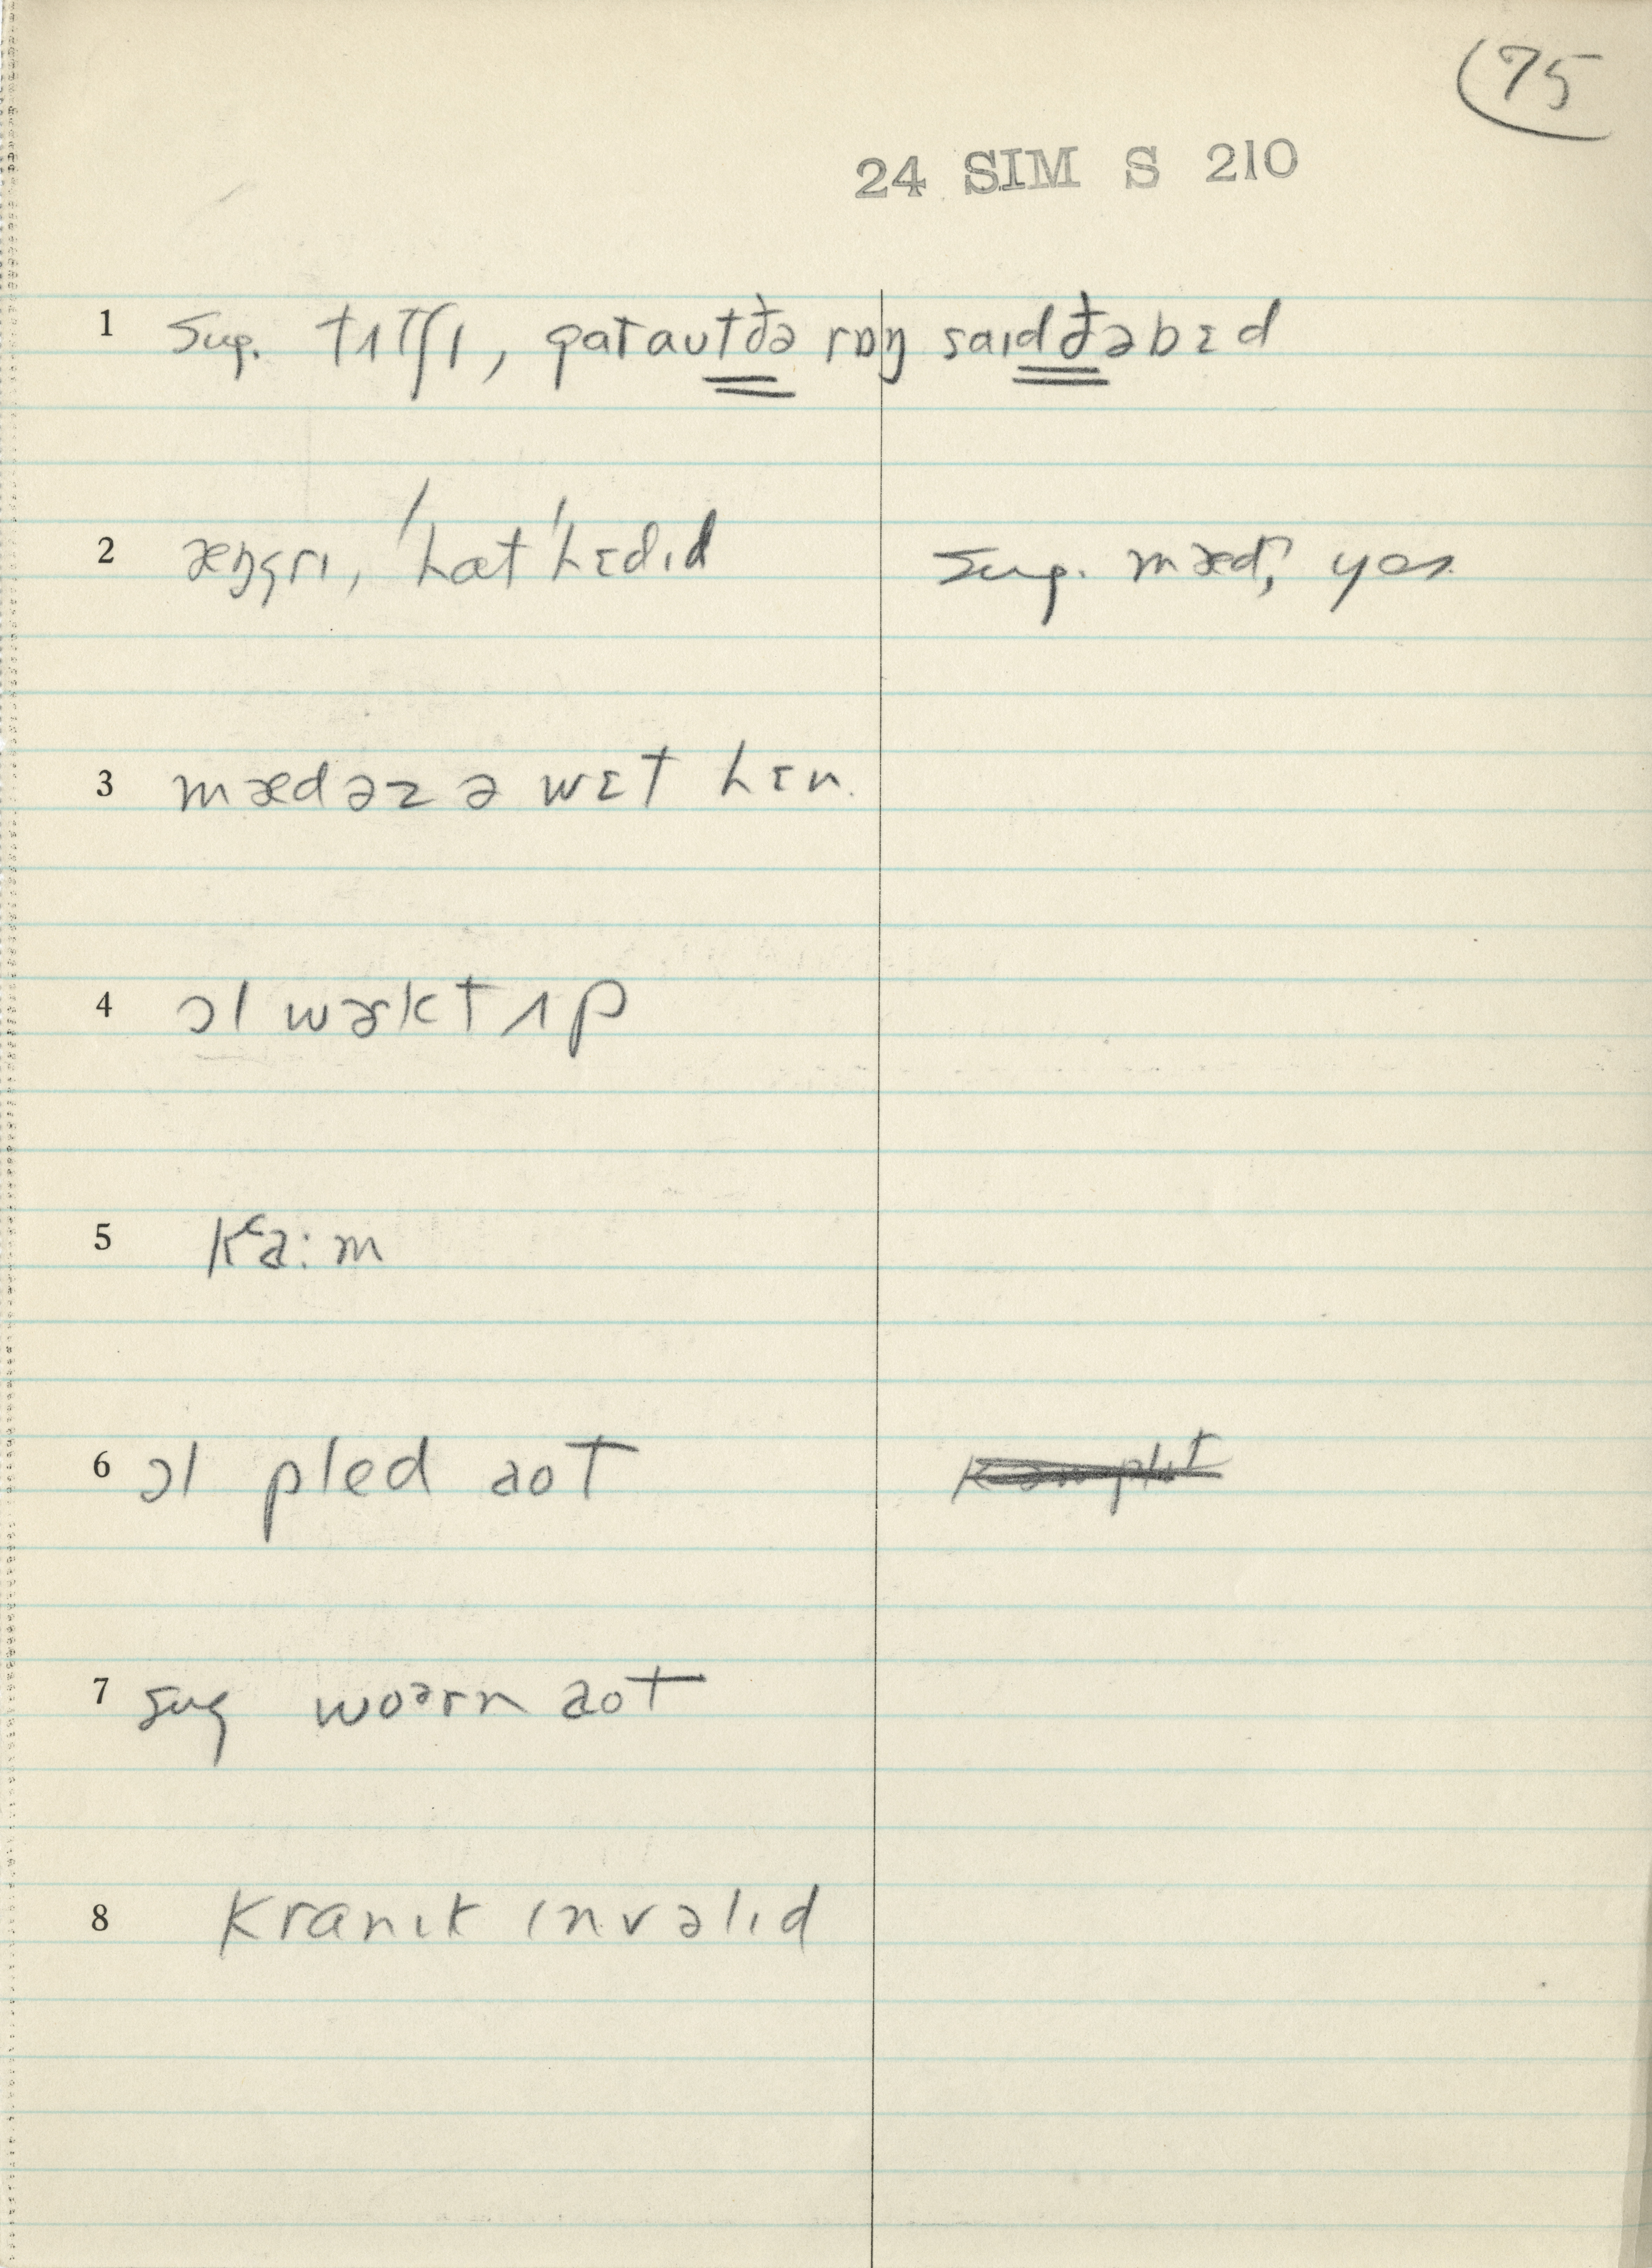 75
24 SIM S 210
1 Sug. tʌtʃɪ, gataʊtðə rɒŋ saɪdðəbɛd
2 æŋgrɪ, ˈhatˈhɛdɪd Sug. mæd, yes.
3 mædəz ə wɛt hɛn.
4 ɔl wɚkt ʌp
5 Kʿa:m
6 ɔl pled aot
7 sug woərn aot
8 Kranɪk ɪnvəlɪd